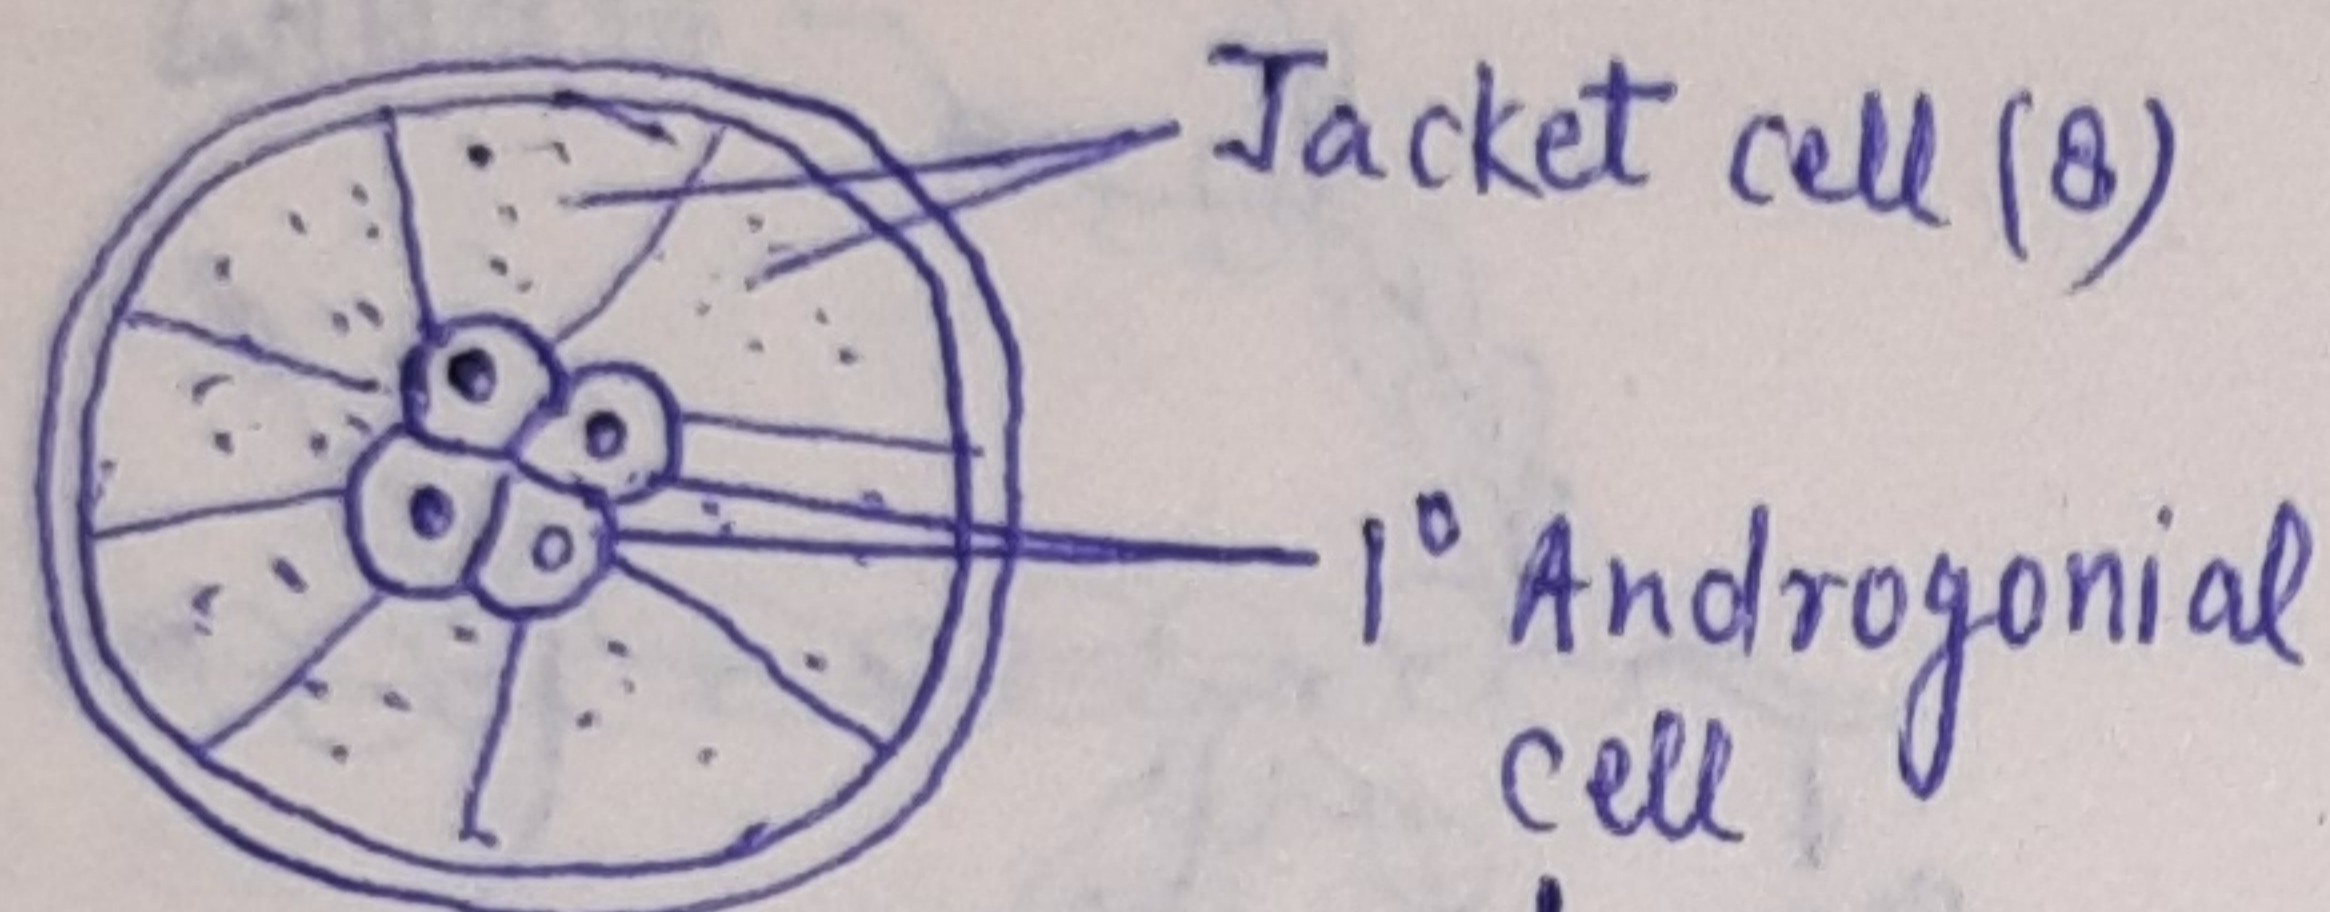 Jacket cell (8)
1° Androgonial
cell